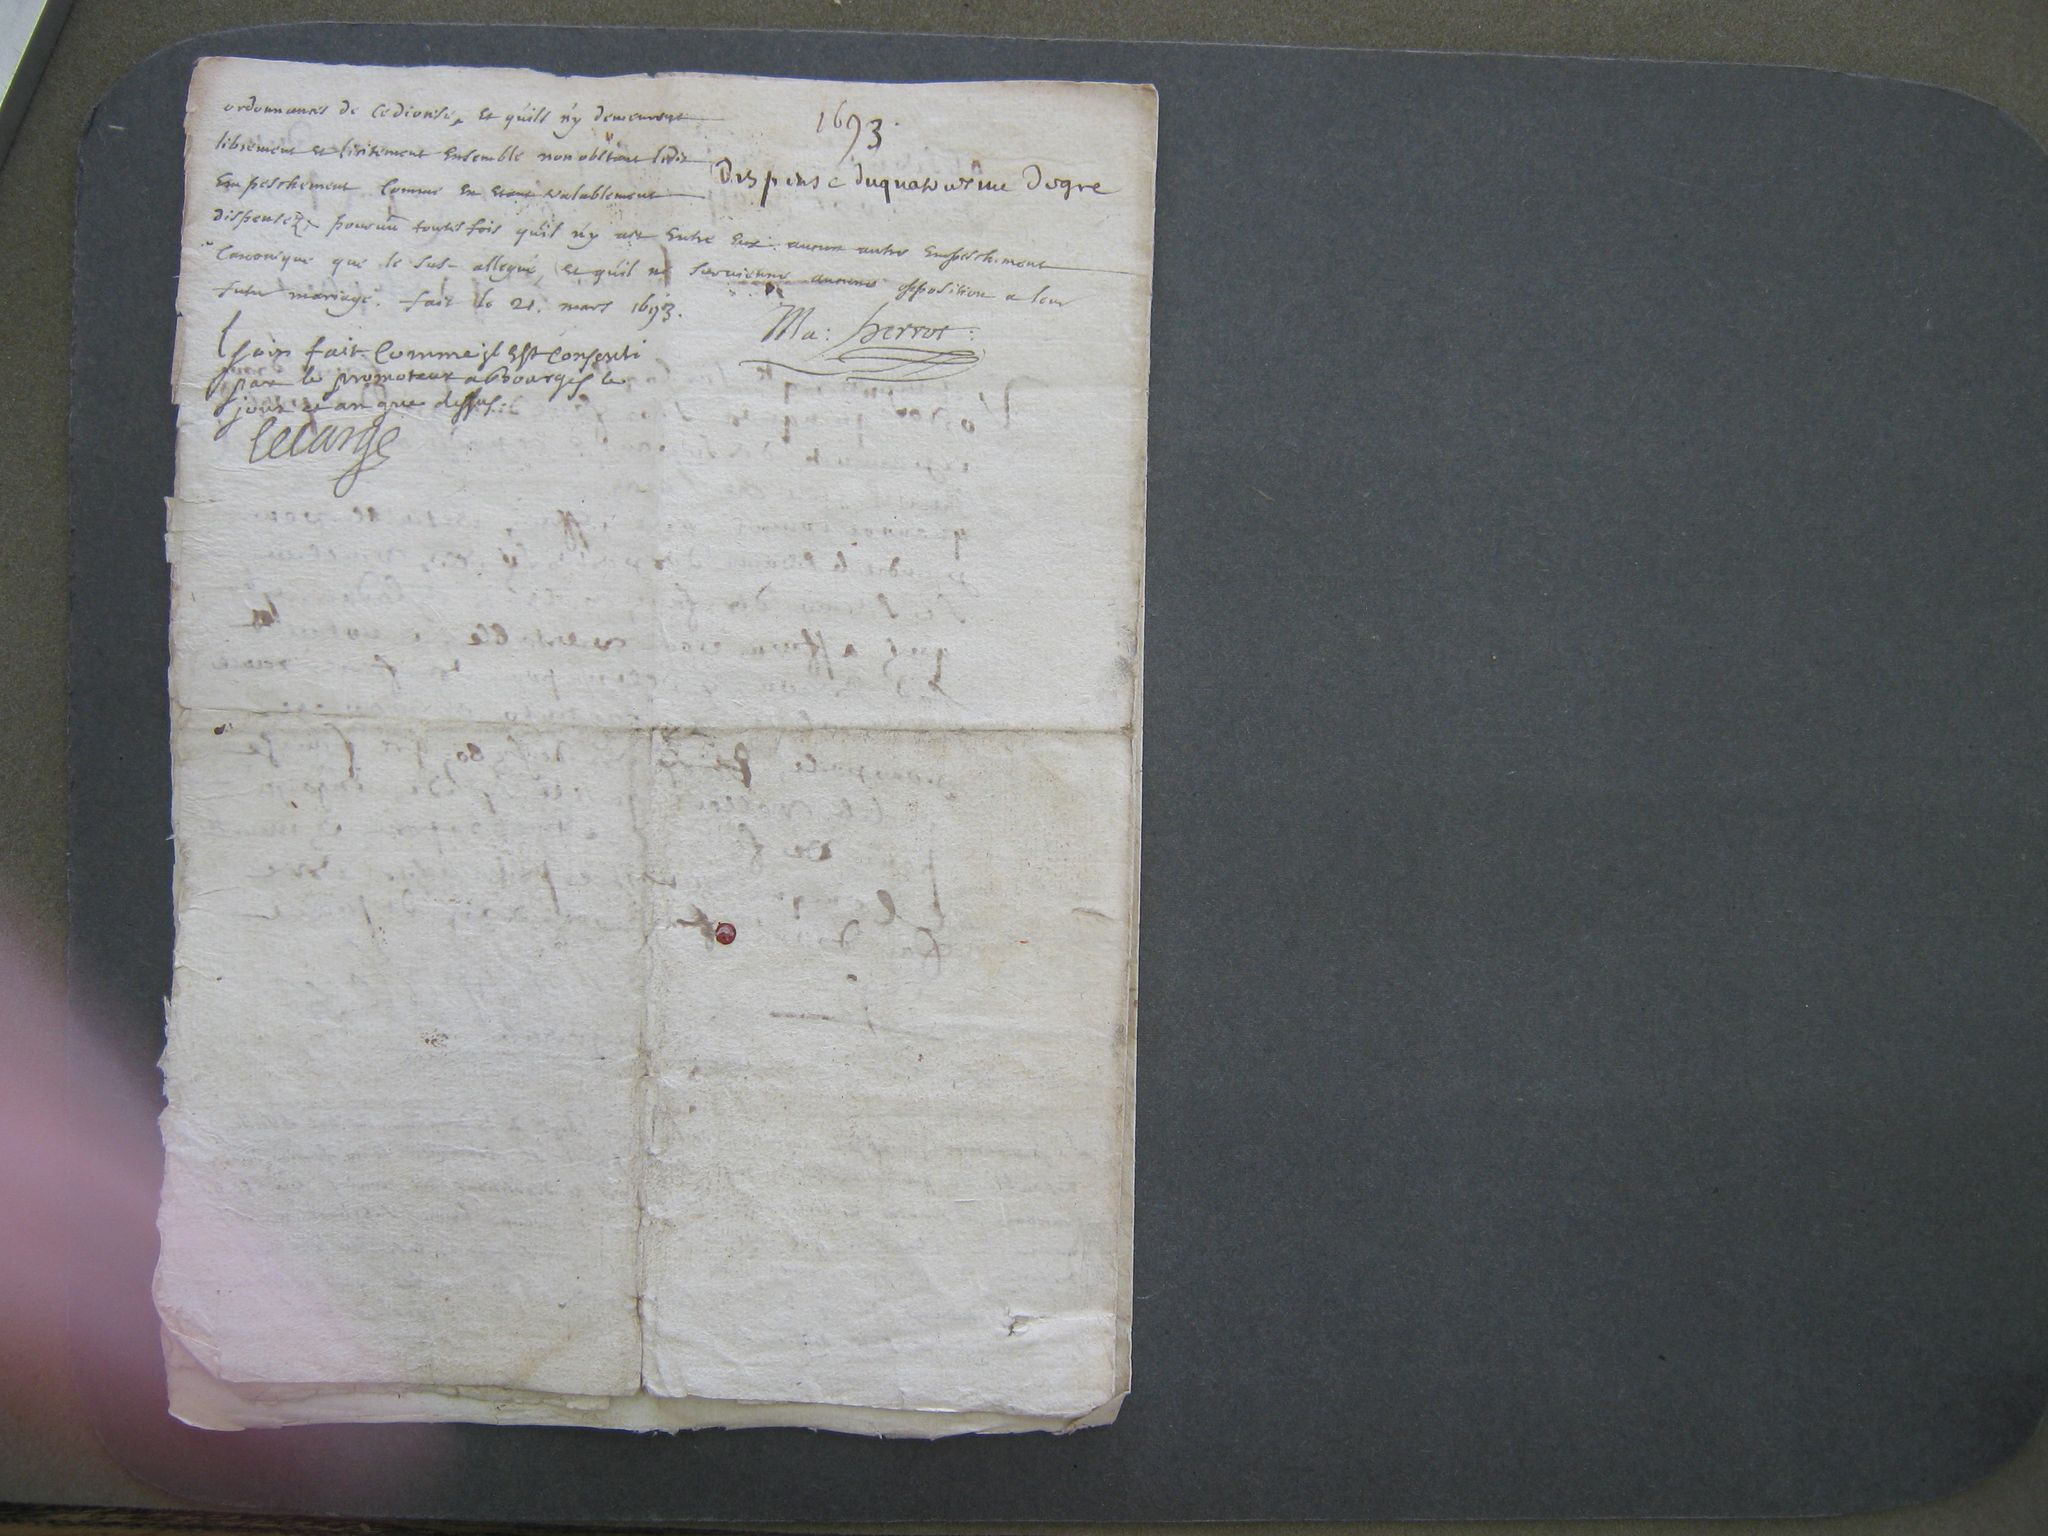 1693.
Dispense du quatorsme degre
ordonnances de ce diocese, et qu'ils n'y demeurent
librement et licitement ensemble non obstant ledit
Empeschement comme en estant valablement
dispensez, pourvu toutesfois qu'il n'y ait entre eux aucun autre Empeschement
Canonique que le sus-allegué, et qu'il ne survienne aucune opposition a leur
futur mariage. fait le 21. mars 1693.
Ma: herrot:
soit fait comme il est consenti
par le promoteur a Bourges le
jour et an que dessus:
Lelarge